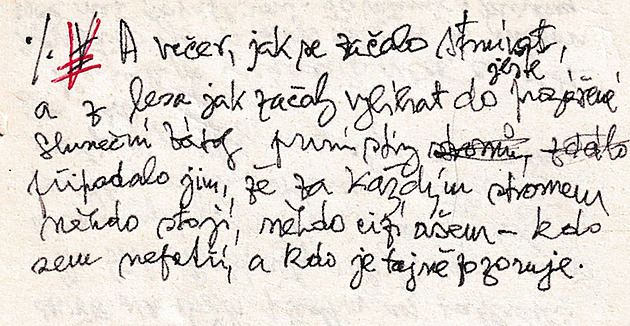 A večer, jak se začalo stmívat,
ještě
a z lesa jak začaly vylíhat do prozářené
sluneční první stíny stromů, zdálo
připadalo jim, že za každým stromem
někdo stojí, někdo cizí a všem – kdo
sem nepatří, a kdo je tajně pozoruje.